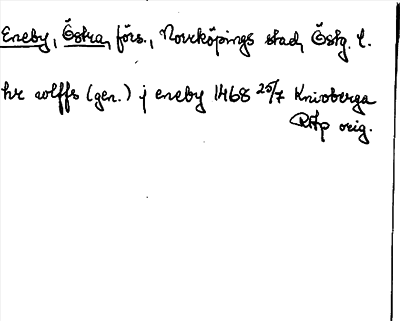 Eneby, Östra, förs., Norrköpings stad, Östg. l.
hr rolffs (gen.) j eneby 1468 25/7 Knivoberga
RAp orig.